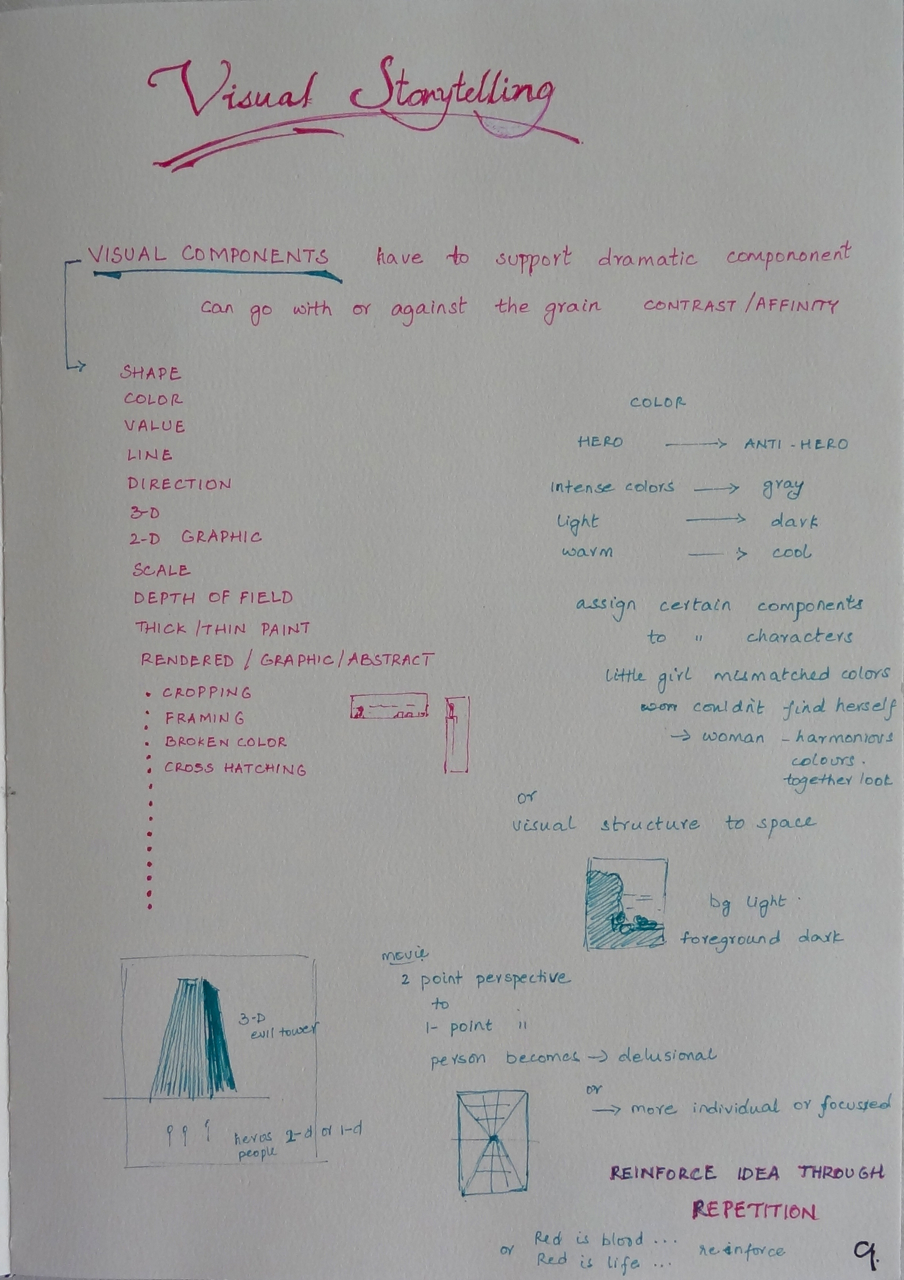 Visual Storytelling
VISUAL COMPONENTS have to support dramatic compononent
can go with or against the grain CONTRAST / AFFINITY
SHAPE
COLOR
VALUE
LINE
DIRECTION
3-D
2-D GRAPHIC
SCALE
DEPTH OF FIELD
THICK / THIN PAINT
RENDERED / GRAPHIC / ABSTRACT
. CROPPING
. FRAMING
. BROKEN COLOR
. CROSS HATCHING
COLOR
HERO → ANTI - HERO
intense colors → gray
light → dark
warm → cool
assign certain components
to " characters
little girl mismatched colors
couldn't find herself
→ woman - harmonious
colours.
together look
or
visual structure to space
bg light.
foreground dark
movie
2 point perspective
to
1- point "
person becomes → delusional
or
→ more individual or focussed
3-D
evil tower
heros 2-d or 1-d
people
REINFORCE IDEA THROUGH
REPETITION
or Red is blood ... reinforce
Red is life ...
9.